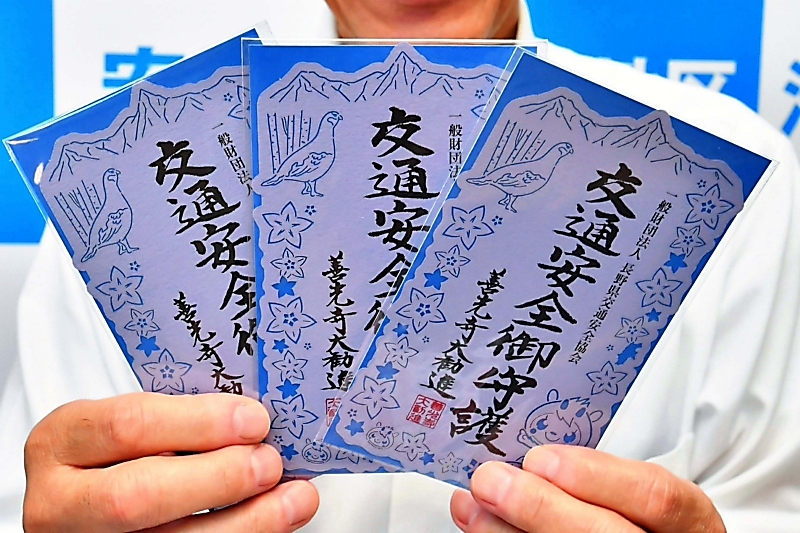 安
区
一般財団法人
交通安全御
善光寺大勧進
一般財団
交通安全御
善光寺大勧進
一般財団法人 長野県交通安全協会
交通安全御守護
善光寺大勧進
善光寺
大勧進